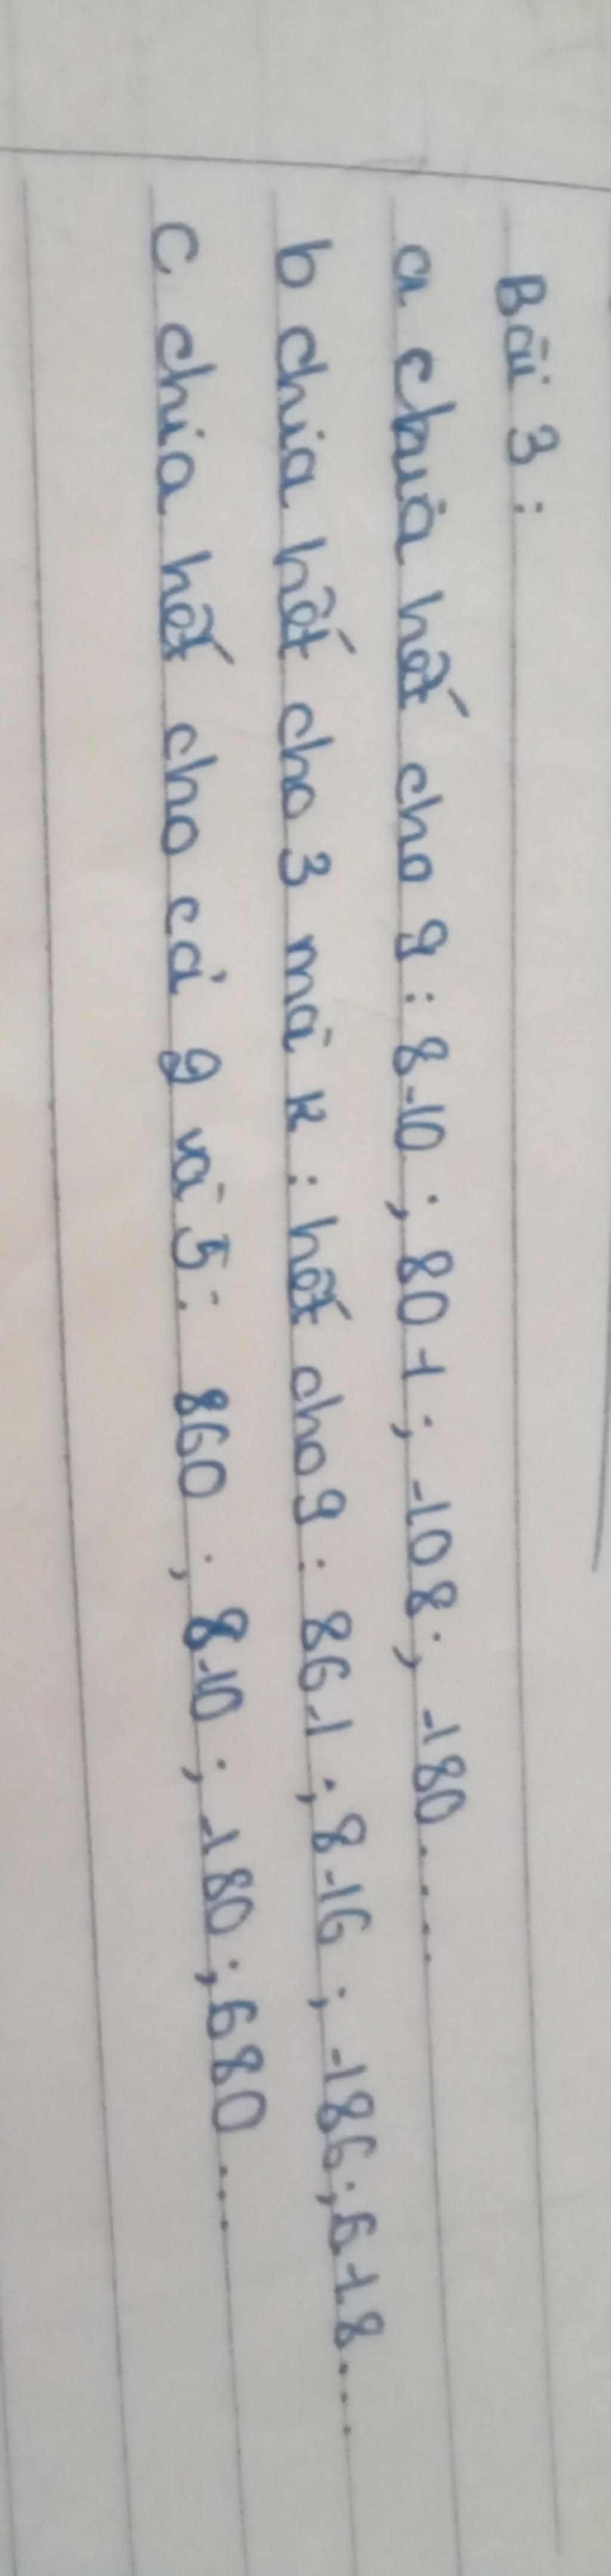 Bài 3 :
a chia hết cho 9 : 810 ; 801 ; 108 ; 180.....
b chia hết cho 3 mà k : hết cho 9 : 861 ; 816 ; 186 ; 618....
c chia hết cho cả 2 và 5 : 860 ; 810 ; 180 ; 680...